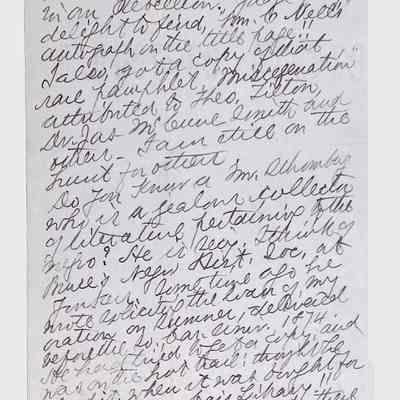 in on Rebellion.
delight to find, Wm. C. Nell's
autograph on the title page!!
I also, got a copy of that
rare pamphlet, "Miscegenation"
attributed to Theo. Tilton,
Dr. Jas McCune Smith and
others — I am still on the
hunt for others.
Do you know a Mr. Schomberg
who is a zealous collector
of literature pertaining to the
Negro? He is Secy, I think of
Bruce's Negro Hist. Soc. at
Yonkers. Some time ago he
wrote soliciting the loan of my
oration on Sumner, delivered
before the So. Car. Univ. 1874.
He had tried to get a copy and
was on the hot trail: though the
it, when it was bought for
Library!!!